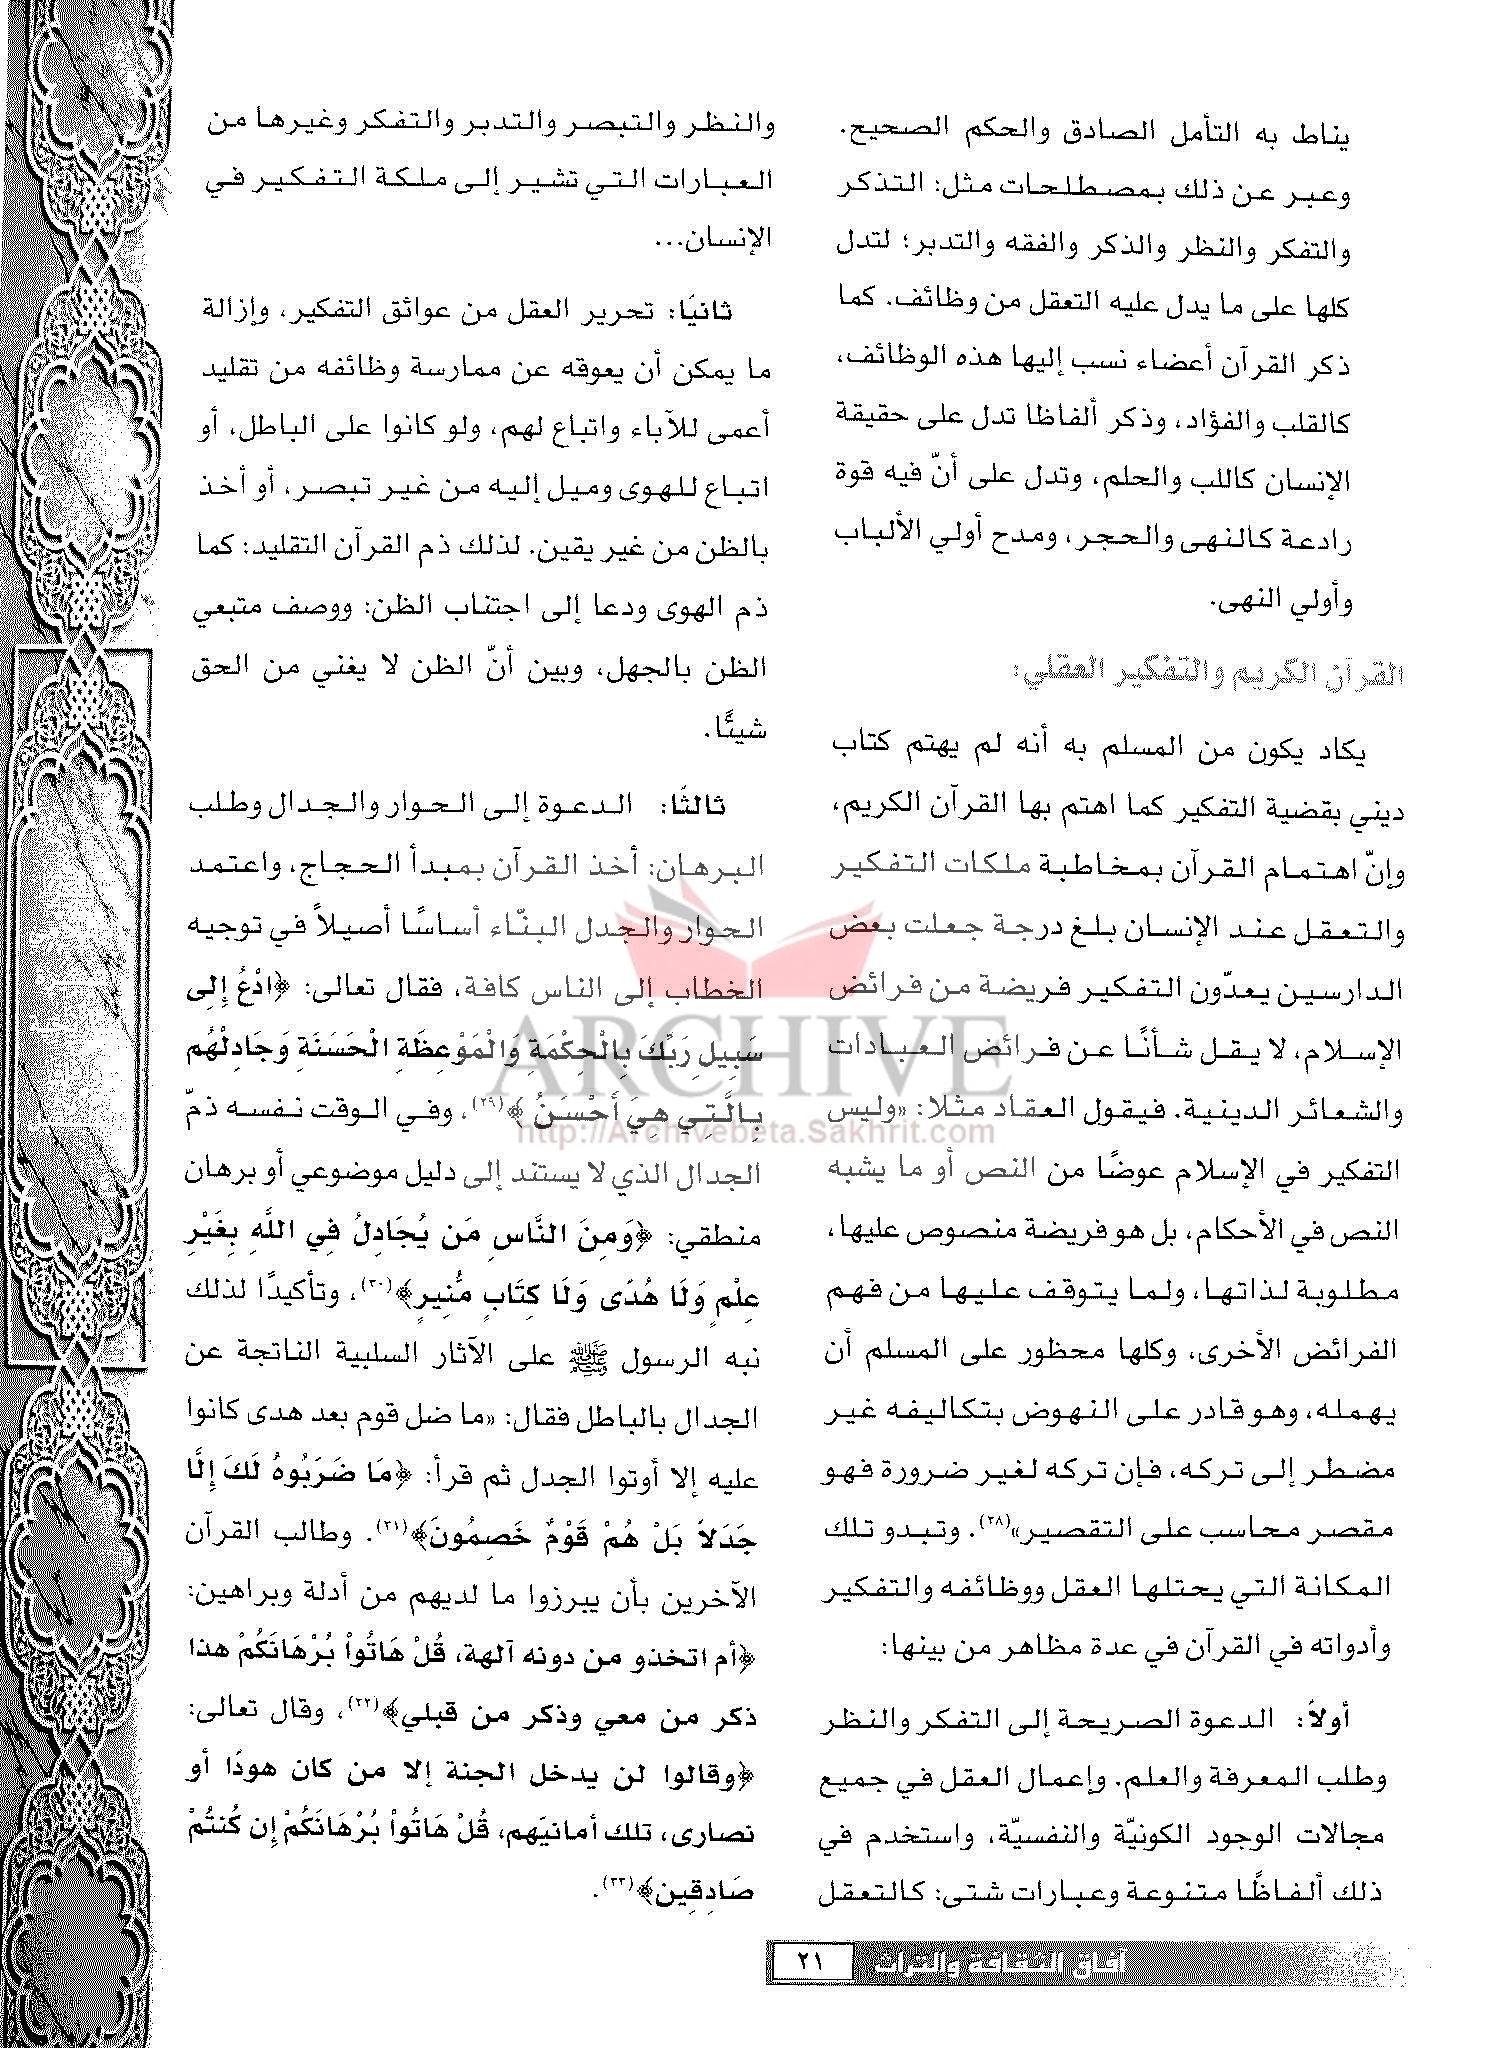 يناط به التأمل الصادق والحكم الصحيح.
وعبر عن ذلك بمصطلحات مثل: التذكر
والتفكر والنظر والذكر والفقه والتدبر؛ لتدل
كلها على ما يدل عليه التعقل من وظائف. كما
ذكر القرآن أعضاء نسب إليها هذه الوظائف،
كالقلب والفؤاد، وذكر ألفاظا تدل على حقيقة
الإنسان كاللب والحلم، وتدل على أنّ فيه قوة
رادعة كالنهى والحجر، ومدح أولي الألباب
وأولي النهى.
القرآن الكريم والتفكير العقلي:
يكاد يكون من المسلم به أنه لم يهتم كتاب
ديني بقضية التفكير كما اهتم بها القرآن الكريم،
وإنّ اهتمام القرآن بمخاطبة ملكات التفكير
والتعقل عند الإنسان بلغ درجة جعلت بعض
الدارسين يعدّون التفكير فريضة من فرائض
الإسلام، لا يقل شأنًا عن فرائض العبادات
والشعائر الدينية. فيقول العقاد مثلا: «وليس
التفكير في الإسلام عوضًا من النص أو ما يشبه
النص في الأحكام، بل هو فريضة منصوص عليها،
مطلوبة لذاتها، ولما يتوقف عليها من فهم
الفرائض الأخرى، وكلها محظور على المسلم أن
يهمله، وهو قادر على النهوض بتكاليفه غير
مضطر إلى تركه، فإن تركه لغير ضرورة فهو
مقصر محاسب على التقصير»(٢٨). وتبدو تلك
المكانة التي يحتلها العقل ووظائفه والتفكير
وأدواته في القرآن في عدة مظاهر من بينها:
أولاً: الدعوة الصريحة إلى التفكر والنظر
وطلب المعرفة والعلم. وإعمال العقل في جميع
مجالات الوجود الكونيّة والنفسيّة، واستخدم في
ذلك ألفاظًا متنوعة وعبارات شتى: كالتعقل
والنظر والتبصر والتدبر والتفكر وغيرها من
العبارات التي تشير إلى ملكة التفكير في
الإنسان...
ثانيًا: تحرير العقل من عوائق التفكير، وإزالة
ما يمكن أن يعوقه عن ممارسة وظائفه من تقليد
أعمى للآباء واتباع لهم، ولو كانوا على الباطل، أو
اتباع للهوى وميل إليه من غير تبصر، أو أخذ
بالظن من غير يقين. لذلك ذم القرآن التقليد: كما
ذم الهوى ودعا إلى اجتناب الظن: ووصف متبعي
الظن بالجهل، وبين أنّ الظن لا يغني من الحق
شيئًا.
ثالثًا: الدعوة إلى الحوار والجدال وطلب
البرهان: أخذ القرآن بمبدأ الحجاج، واعتمد
الحوار والجدل البنّاء أساسًا أصيلاً في توجيه
الخطاب إلى الناس كافة، فقال تعالى: ﴿ادْعُ إِلِى
سَبِيلِ رَبِّكَ بِالْحِكْمَةِ وَالْمَوْعِظَةِ الْحَسَنَةِ وَجَادِلْهُم
بِالَّتِي هِيَ أَحْسَنُ ﴾(٢٩)، وفي الوقت نفسه ذمّ
الجدال الذي لا يستند إلى دليل موضوعي أو برهان
منطقي: ﴿وَمِنَ النَّاسِ مَن يُجَادِلُ فِي اللَّهِ بِغَيْرِ
عِلْمٍ وَلَا هُدًى وَلَا كِتَابٍ مُّنِيرٍ﴾(٣٠)، وتأكيدًا لذلك
نبه الرسول ﷺ على الآثار السلبية الناتجة عن
الجدال بالباطل فقال: «ما ضل قوم بعد هدى كانوا
عليه إلا أوتوا الجدل ثم قرأ: ﴿مَا ضَرَبُوهُ لَكَ إِلَّا
جَدَلاً بَلْ هُمْ قَوْمٌ خَصِمُونَ﴾(٣١). وطالب القرآن
الآخرين بأن يبرزوا ما لديهم من أدلة وبراهين:
﴿أم اتخذو من دونه آلهة، قُلْ هَاتُواْ بُرْهَانَكُمْ هذا
ذكر من معي وذكر من قبلي﴾(٣٢)، وقال تعالى:
﴿وقالوا لن يدخل الجنة إلا من كان هودًا أو
نصارى، تلك أمانيَهم، قُلْ هَاتُواْ بُرْهَانَكُمْ إِن كُنتُمْ
صَادِقِين﴾(٣٣).
ARCHIVE
http://Archivebeta.Sakhrit.com
آفاق الثقافة والتراث ٢١